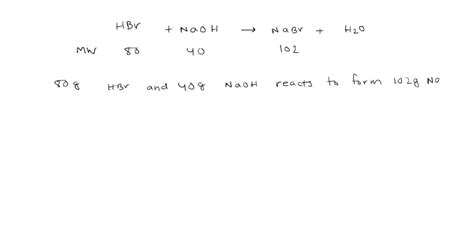 HBr + NaOH → NaBr + H2O
MW 80 40 102
80g HBr and 40g NaOH reacts to form 102g Na